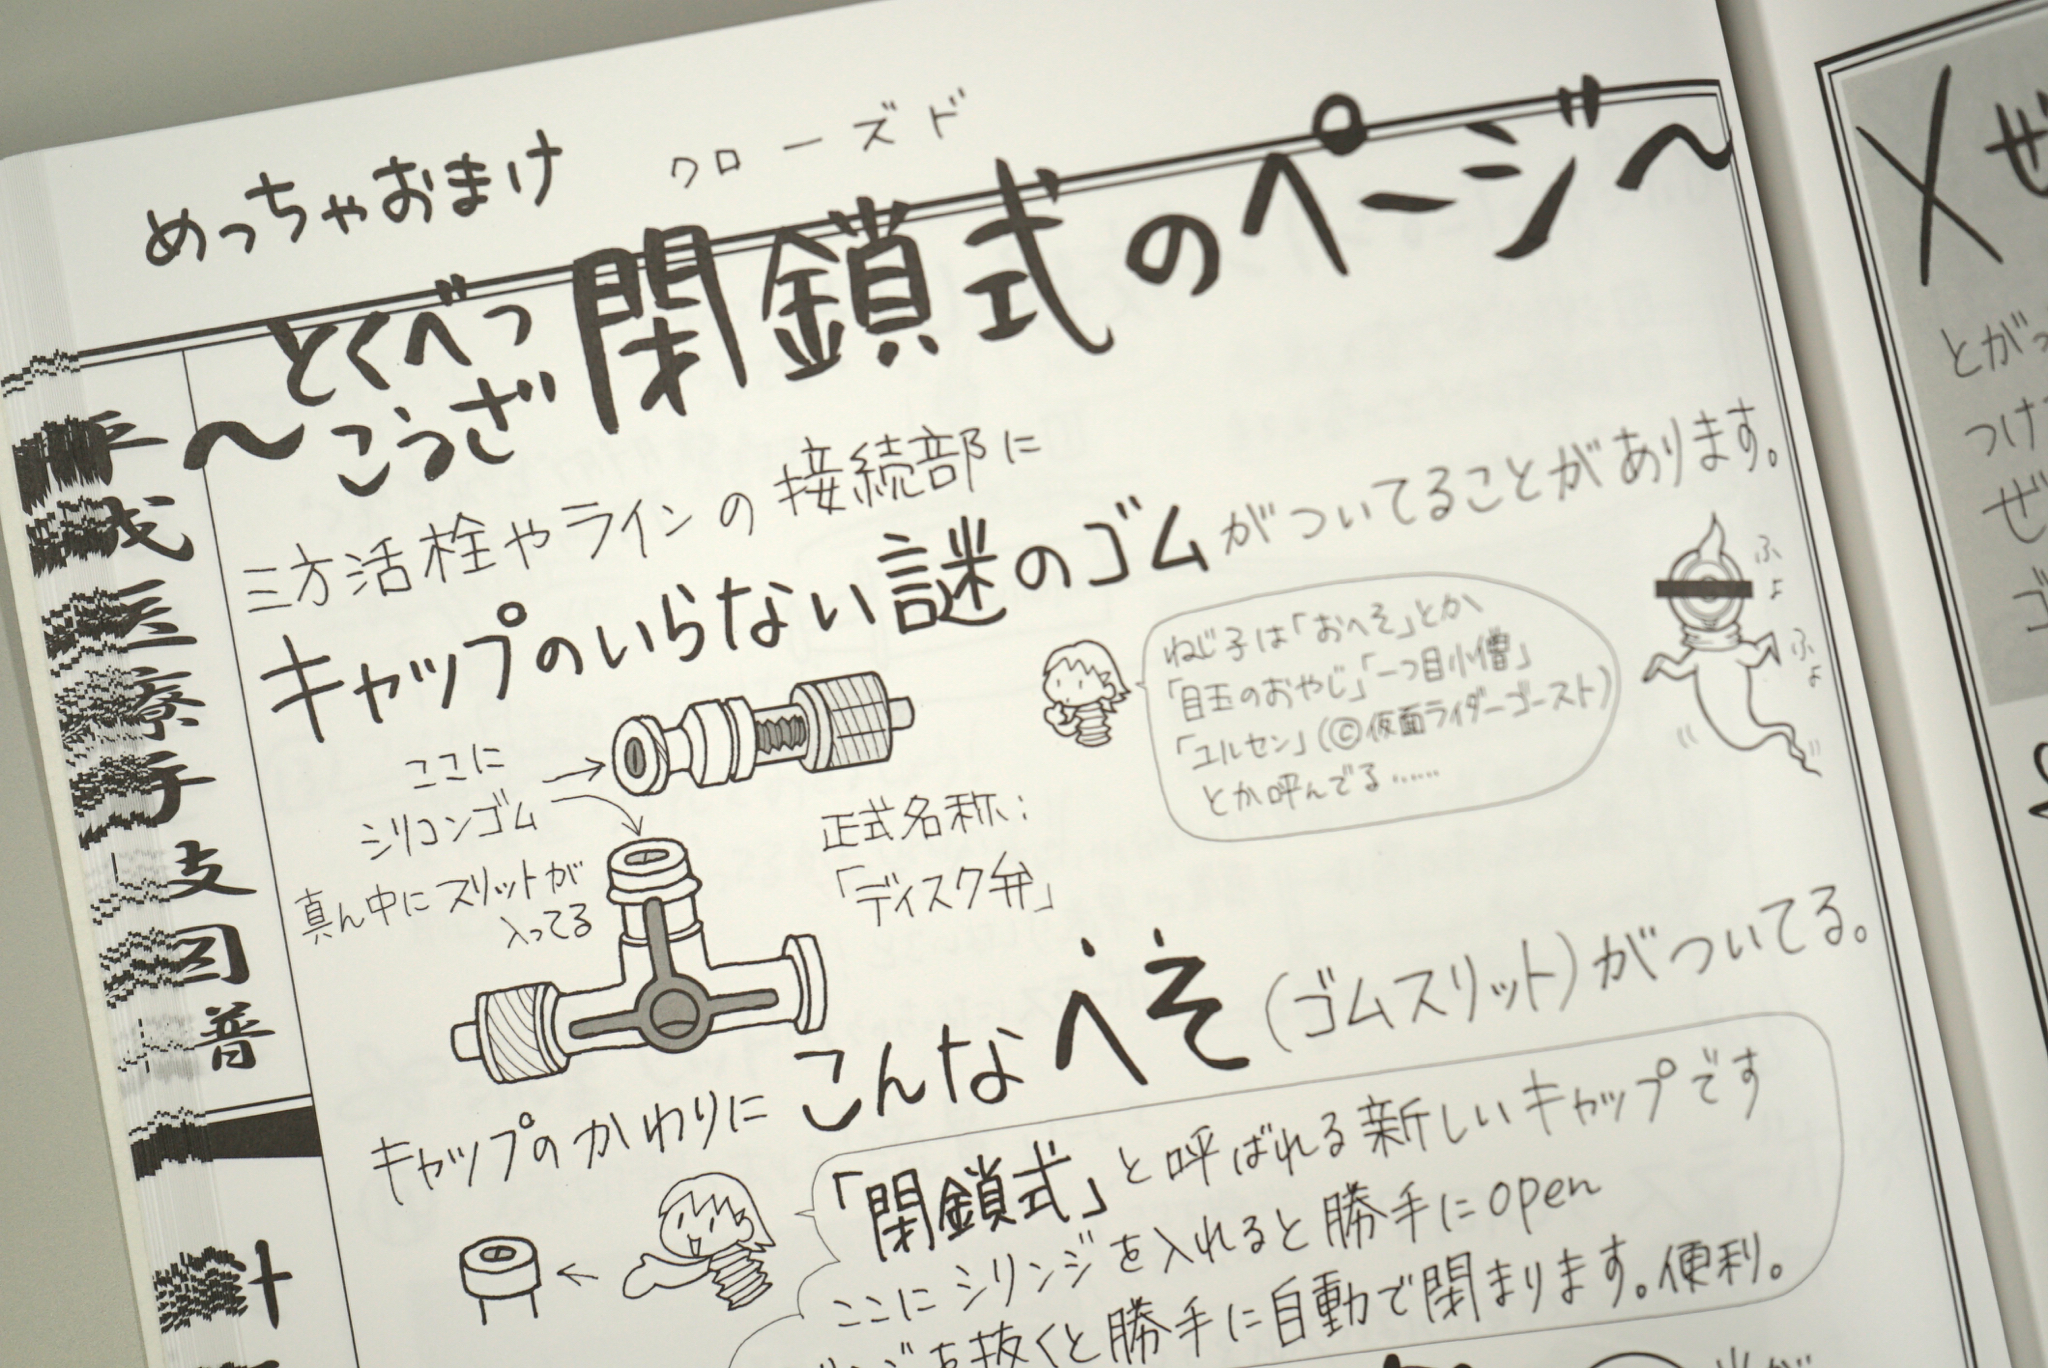 めっちゃおまけ
クローズド
〜とくべつ
こうざ
閉鎖式のページ〜
三方活栓やラインの接続部に
キャップのいらない謎のゴムがついてることがあります。
ねじ子は「おへそ」とか
「目玉のおやじ」「一つ目小僧」
「ユルセン」(©仮面ライダーゴースト)
とか呼んでる……
ふよ
ふよ
ここに
シリコンゴム
真ん中にスリットが
入ってる
正式名称:
「ディスク弁」
キャップのかわりにこんなへそ(ゴムスリット)がついてる。
「閉鎖式」と呼ばれる新しいキャップです
ここにシリンジを入れると勝手にopen
を抜くと勝手に自動で閉まります。便利。
手
支
図
普
とがっ
つけ
ぜ